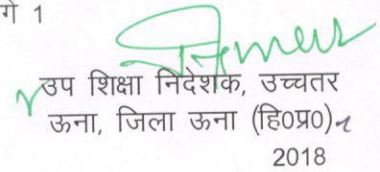 गे 1
उप शिक्षा निदेशक, उच्चतर
ऊना, जिला ऊना (हि0प्र0)
2018